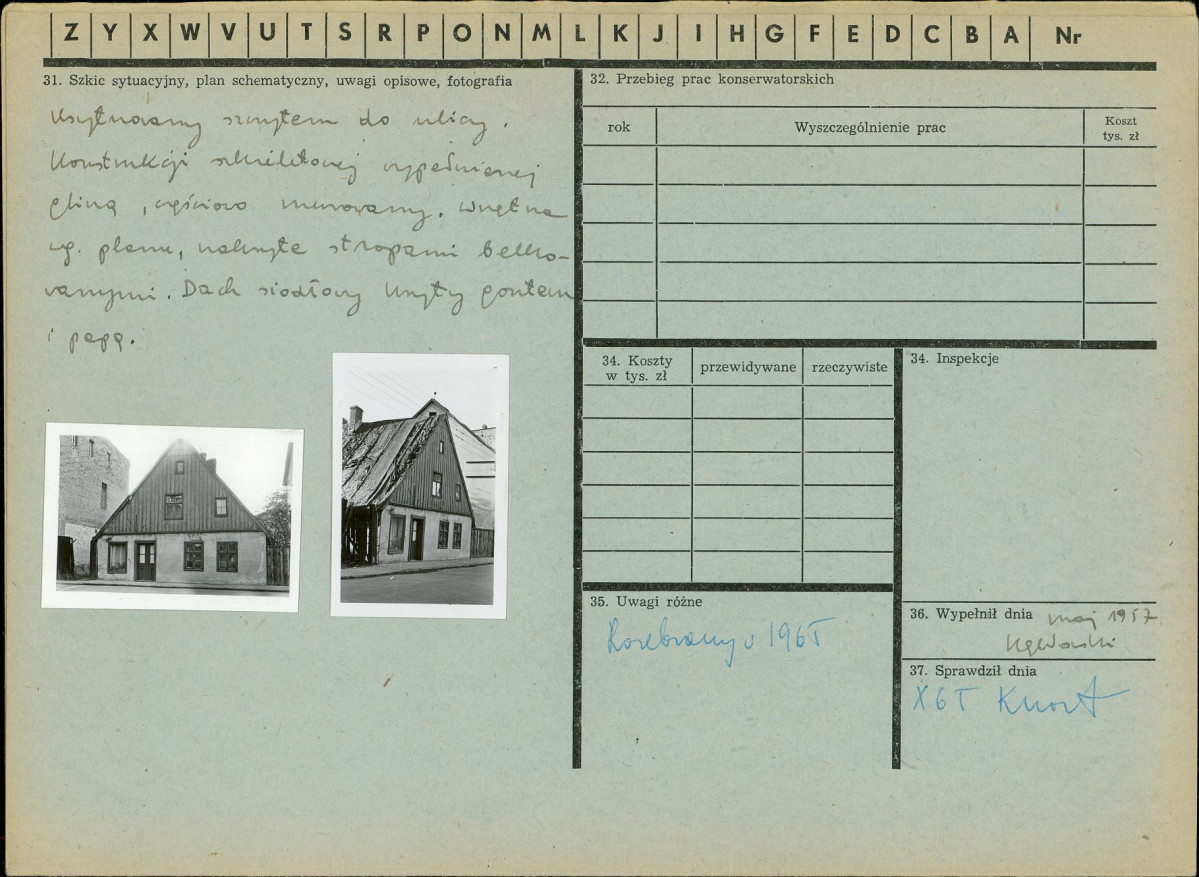 Z Y X W V U T S R P O N M L K J I H G F E D C B A Nr
31. Szkic sytuacyjny, plan schematyczny, uwagi opisowe, fotografia
Usytuowany szczytem do ulicy.
Konstrukcji szkieletowej wypełnionej
gliną, częściowo murowany. Wnętrza
wg. planu, nakryte stropami belko-
wanymi. Dach siodłowy kryty gontem
i papą.
32. Przebieg prac konserwatorskich
rok
Wyszczególnienie prac
Koszt
tys. zł
34. Koszty
w tys. zł
przewidywane
rzeczywiste
34. Inspekcje
35. Uwagi różne
Rozebrany w 1965
36. Wypełnił dnia maj 1957
37. Sprawdził dnia
X 65